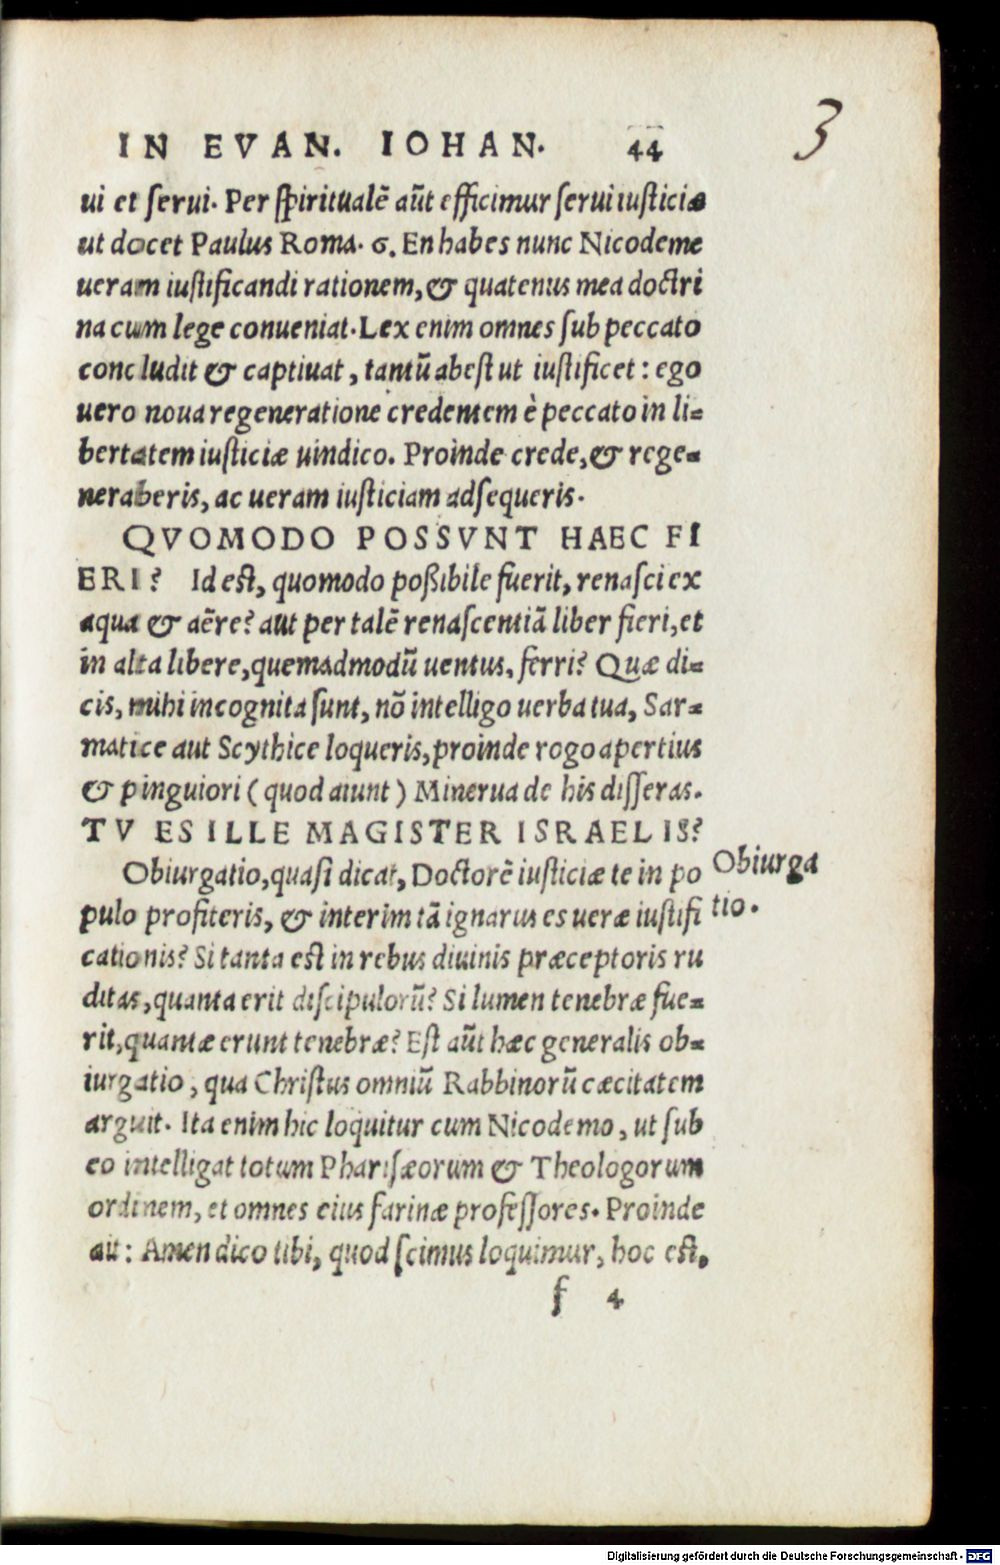 IN EVAN. IOHAN. 44
3
ui et ſerui. Per ſpiritualē aūt efficimur ſerui iuſticiæ
ut docet Paulus Roma. 6. En habes nunc Nicodeme
ueram iuſtificandi rationem, & quatenus mea doctri
na cum lege conueniat. Lex enim omnes ſub peccato
concludit & captiuat, tantū abeſt ut iuſtificet: ego
uero noua regeneratione credentem è peccato in li=
bertatem iuſticiæ uindico. Proinde crede, & rege=
neraberis, ac ueram iuſticiam adſequeris.
QVOMODO POSSVNT HAEC FI
ERI? Id eſt, quomodo poßibile fuerit, renaſci ex
aqua & aëre? aut per talē renaſcentiā liber fieri, et
in alta libere, quemadmodū uentus, ferri? Quæ di=
cis, mihi incognita ſunt, nō intelligo uerba tua, Sar=
matice aut Scythice loqueris, proinde rogo apertius
& pinguiori (quod aiunt) Minerua de his diſſeras.
TV ES ILLE MAGISTER ISRAELIS?
Obiurgatio, quaſi dicat, Doctorē iuſticiæ te in po
Obiurga
pulo profiteris, & interim tā ignarus es ueræ iuſtifi
tio.
cationis? Si tanta eſt in rebus diuinis præceptoris ru
ditas, quanta erit diſcipulorū? Si lumen tenebræ fue=
rit, quantæ erunt tenebræ? Eſt aūt hæc generalis ob=
iurgatio, qua Chriſtus omniū Rabbinorū cæcitatem
arguit. Ita enim hic loquitur cum Nicodemo, ut ſub
eo intelligat totum Phariſæorum & Theologorum
ordinem, et omnes eius farinæ profeſſores. Proinde
ait: Amen dico tibi, quod ſcimus loquimur, hoc eſt,
f 4
Digitalisierung gefördert durch die Deutsche Forschungsgemeinschaft - DFG